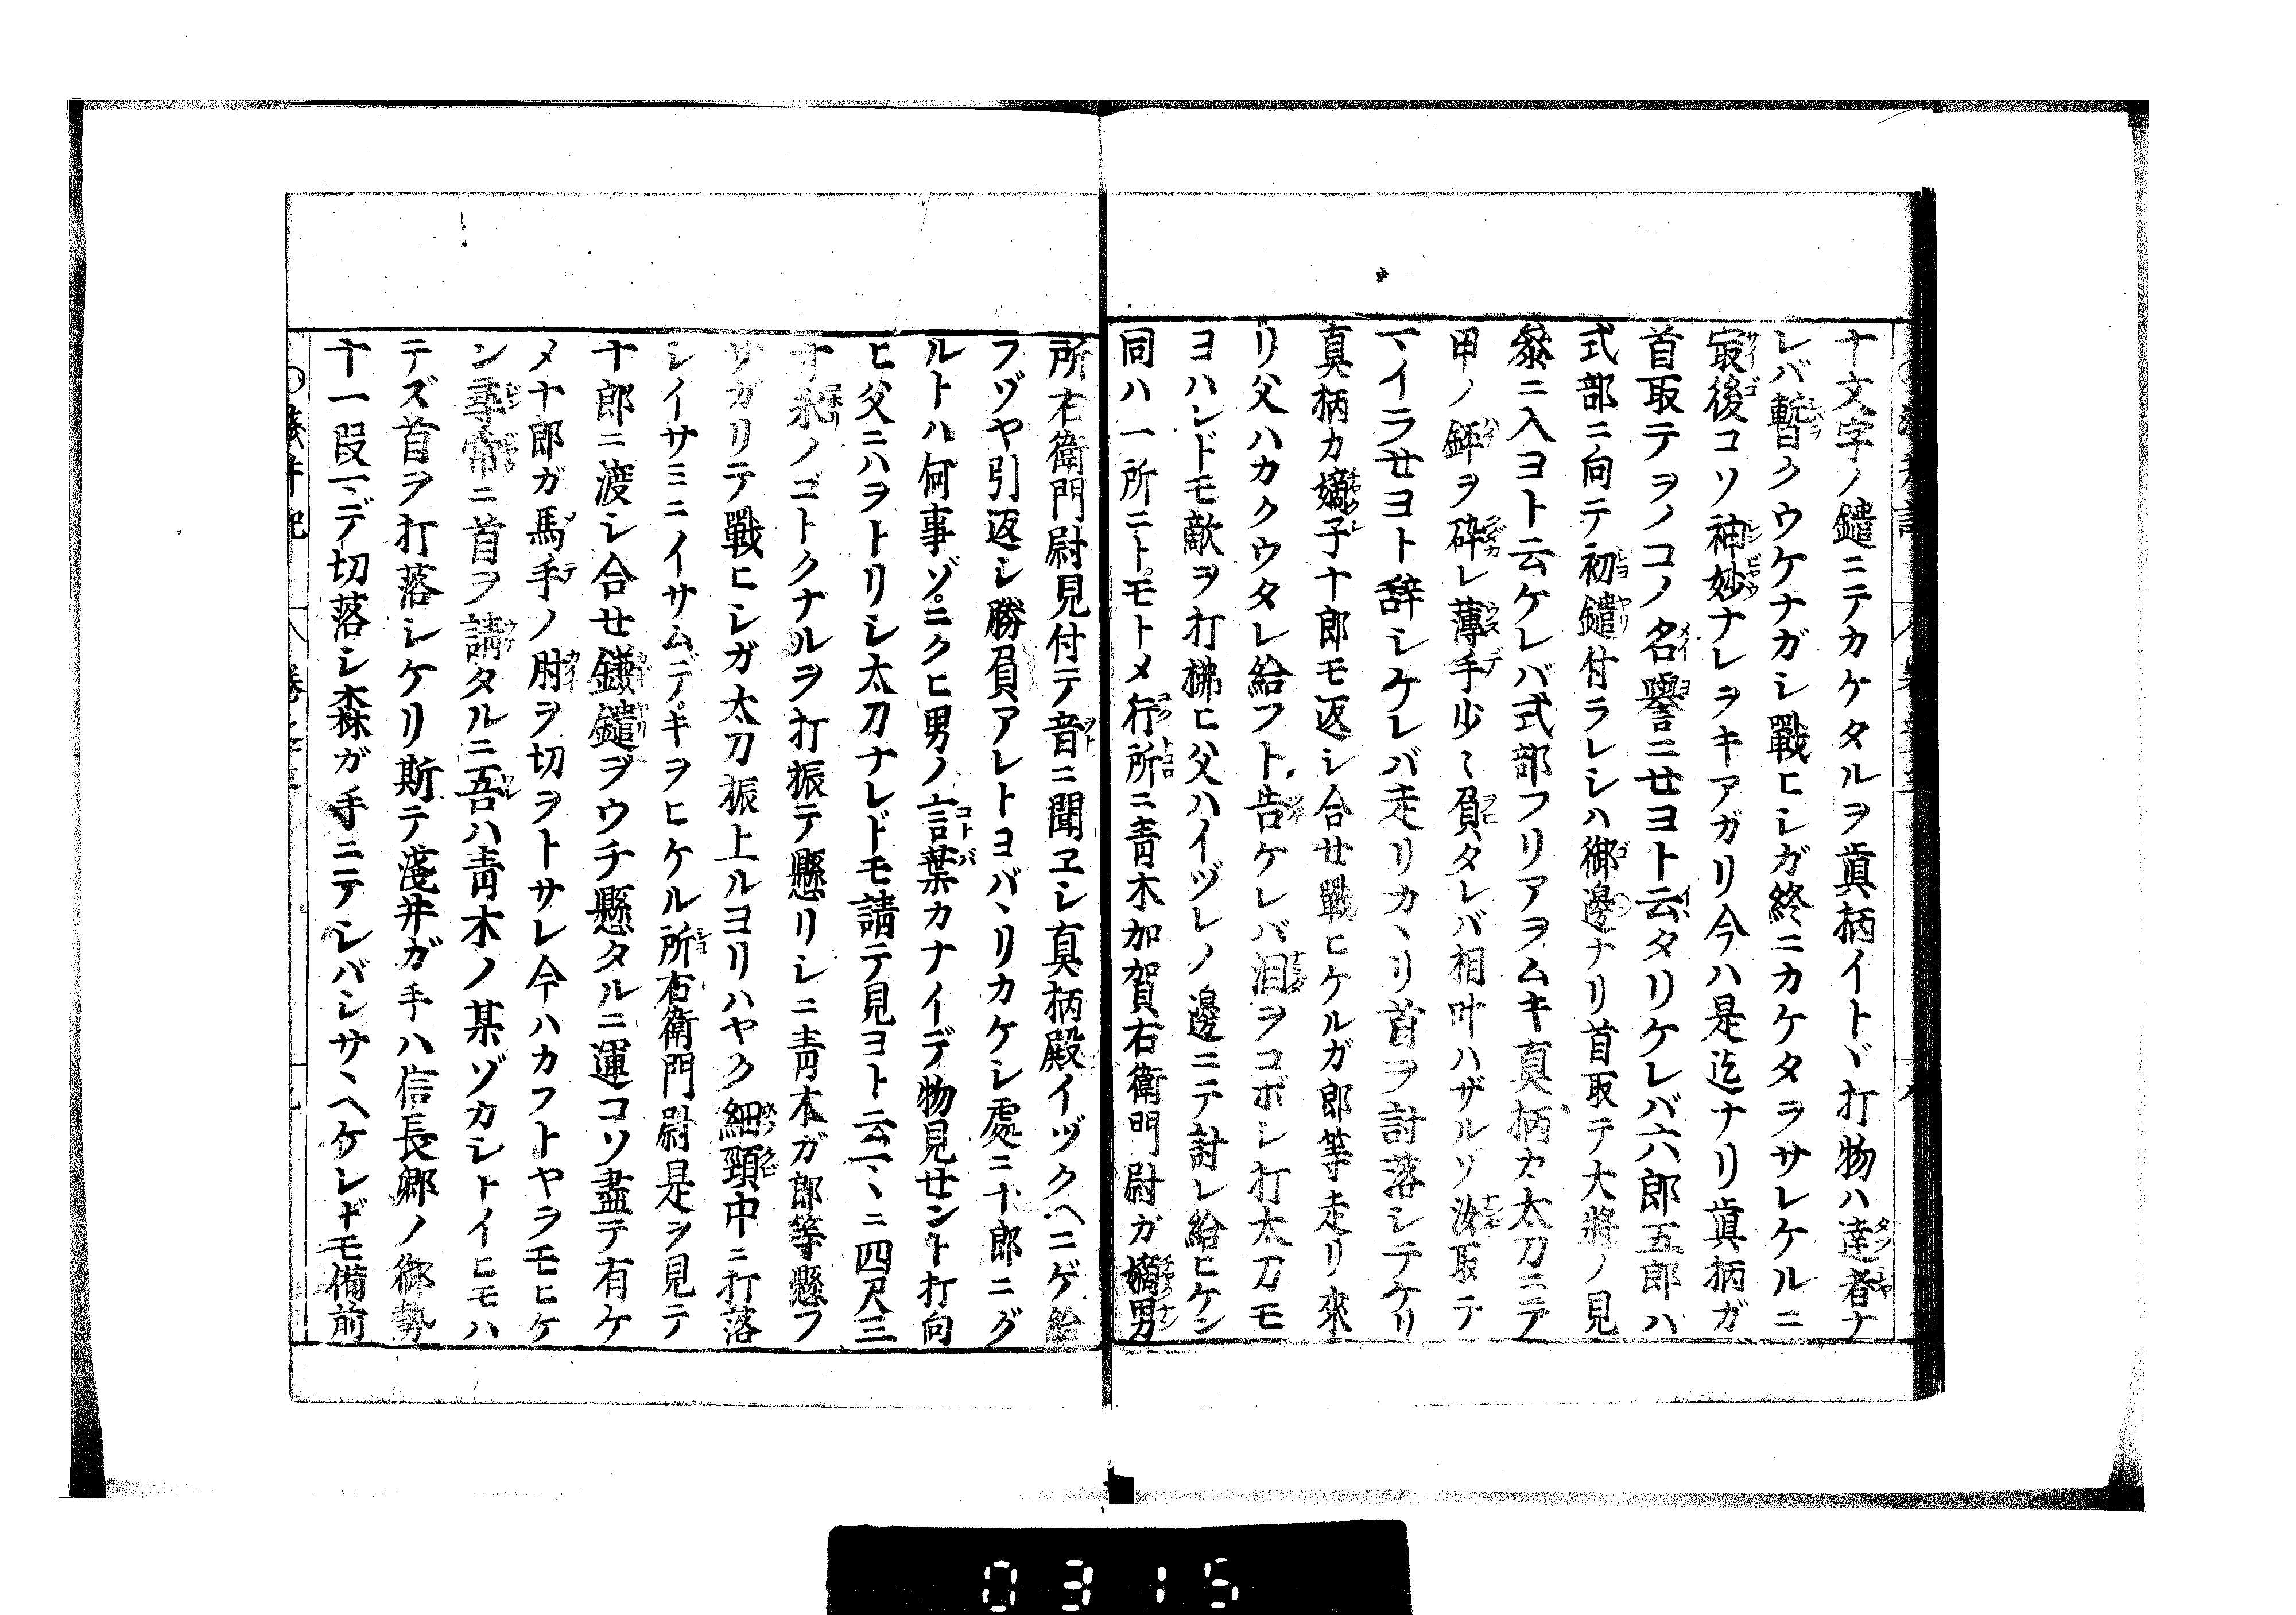 十文字ノ鑓ニテカケタルヲ眞柄イトヾ打物ハ達者ナ
レバ暫クウケナガシ戰ヒシガ終ニカケタラサレケルニ
冣後コソ神妙ナレヲキアガリ今ハ是迄ナリ眞柄ガ
首取テヲノコノ名譽ニせヨト云タリケレバ六郎五郎ハ
式部ニ向テ初鑓付ラレシハ御邊ナリ首取テ大將ノ見
參ニ入ヨト云ケレバ式部フリアヲムキ真柄カ太刀ニテ
甲ノ鉢ヲ碎レ薄手少〻負タレバ相叶ハザルゾ汝取テ
マイラせヨト辞シケレバ走リカヽリ首ヲ討落シテケリ
真柄カ嫡子十郎モ返シ合せ戰ヒケルガ郎等走リ來
リ父ハカクウタレ給フト告ケレバ泪ヲコボシ打太刀モ
ヨハレドモ敵ヲ打拂ヒ父ハイヅレノ邊ニテ討レ給ヒケン
同ハ一所ニトモトメ行所ニ青木加賀右衛門尉ガ嫡男
所右衛門尉見付テ音ニ聞ヱシ真柄殿イヅクヘニゲ給
フゾヤ引返シ勝負アレトヨバヽリカケシ處ニ十郎ニグ
ルトハ何事ゾニクヒ男ノ言葉カナイデ物見せント打向
ヒ父ニハヲトリシ太刀ナレドモ請テ見ヨト云マヽニ四尺三
寸氷ノゴトクナルヲ打振テ懸リシニ青木ガ郎等懸フ
サガリテ戰ヒシガ太刀振上ルヨリハヤク細頸中ニ打落
シイサミニイサムデキヲヒケル所右衛門尉是ヲ見テ
十郎ニ渡シ合せ鎌鑓ヲウチ懸タルニ運コソ盡テ有ケ
メ十郎ガ馬手ノ肘ヲ切ヲトサレ今ハカフトヤラモヒケ
ン尋常ニ首ヲ請タルニ吾ハ青木ノ某ゾカシトイヒモハ
テズ首ヲ打落シケリ斯テ淺井ガ手ハ信長卿ノ御勢
十一段マデ切落シ森ガ手ニテシバシサヽヘケレドモ備前
0315